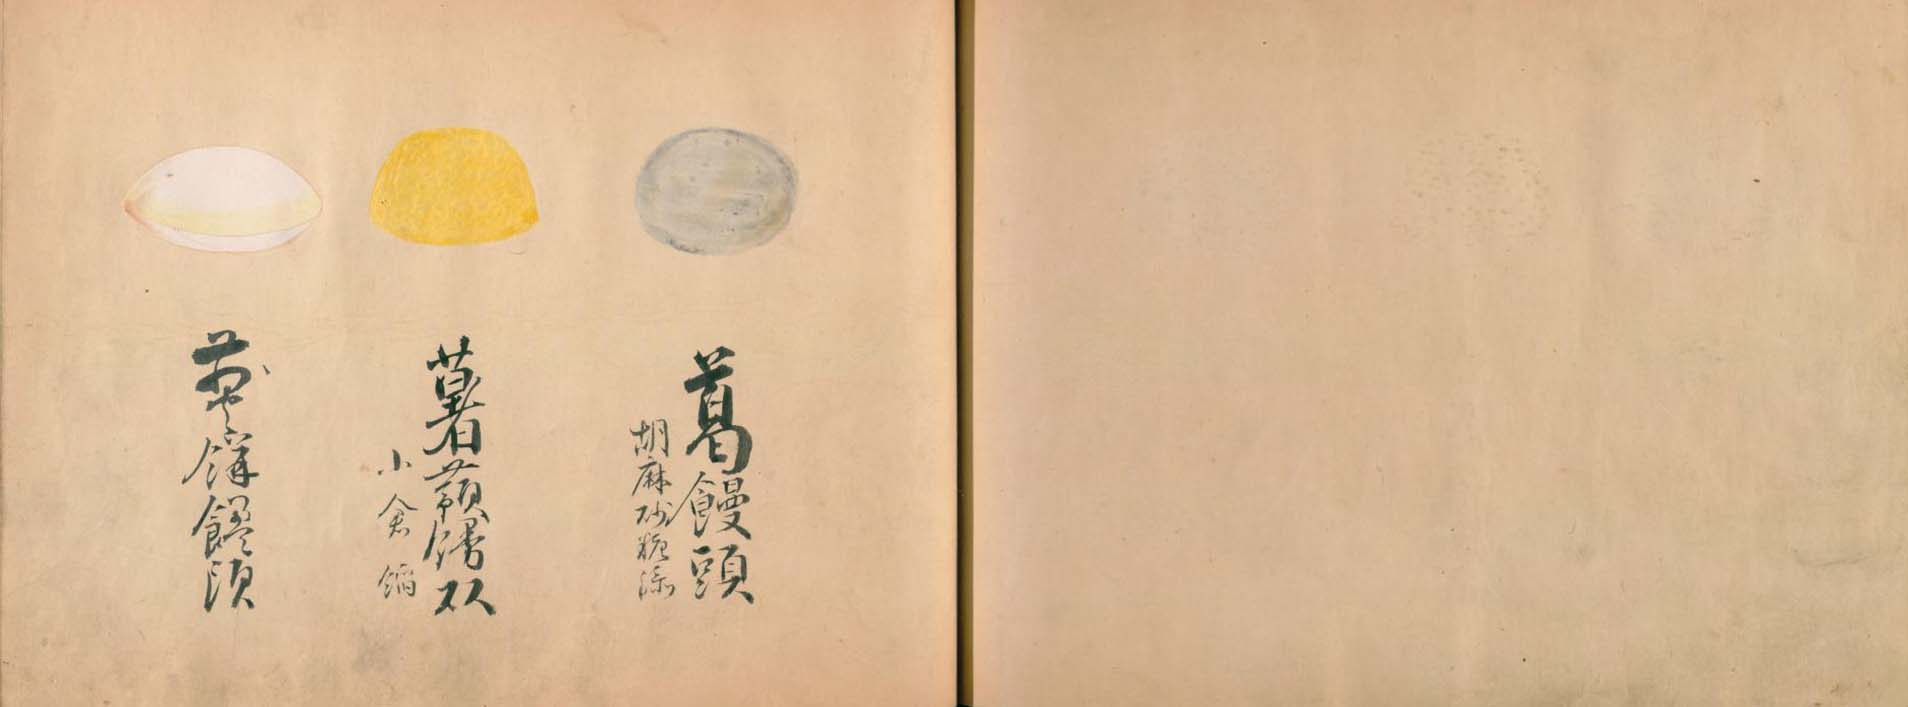 葛饅頭
胡麻砂糖添
薯蕷饅
小倉餡
餅饅頭